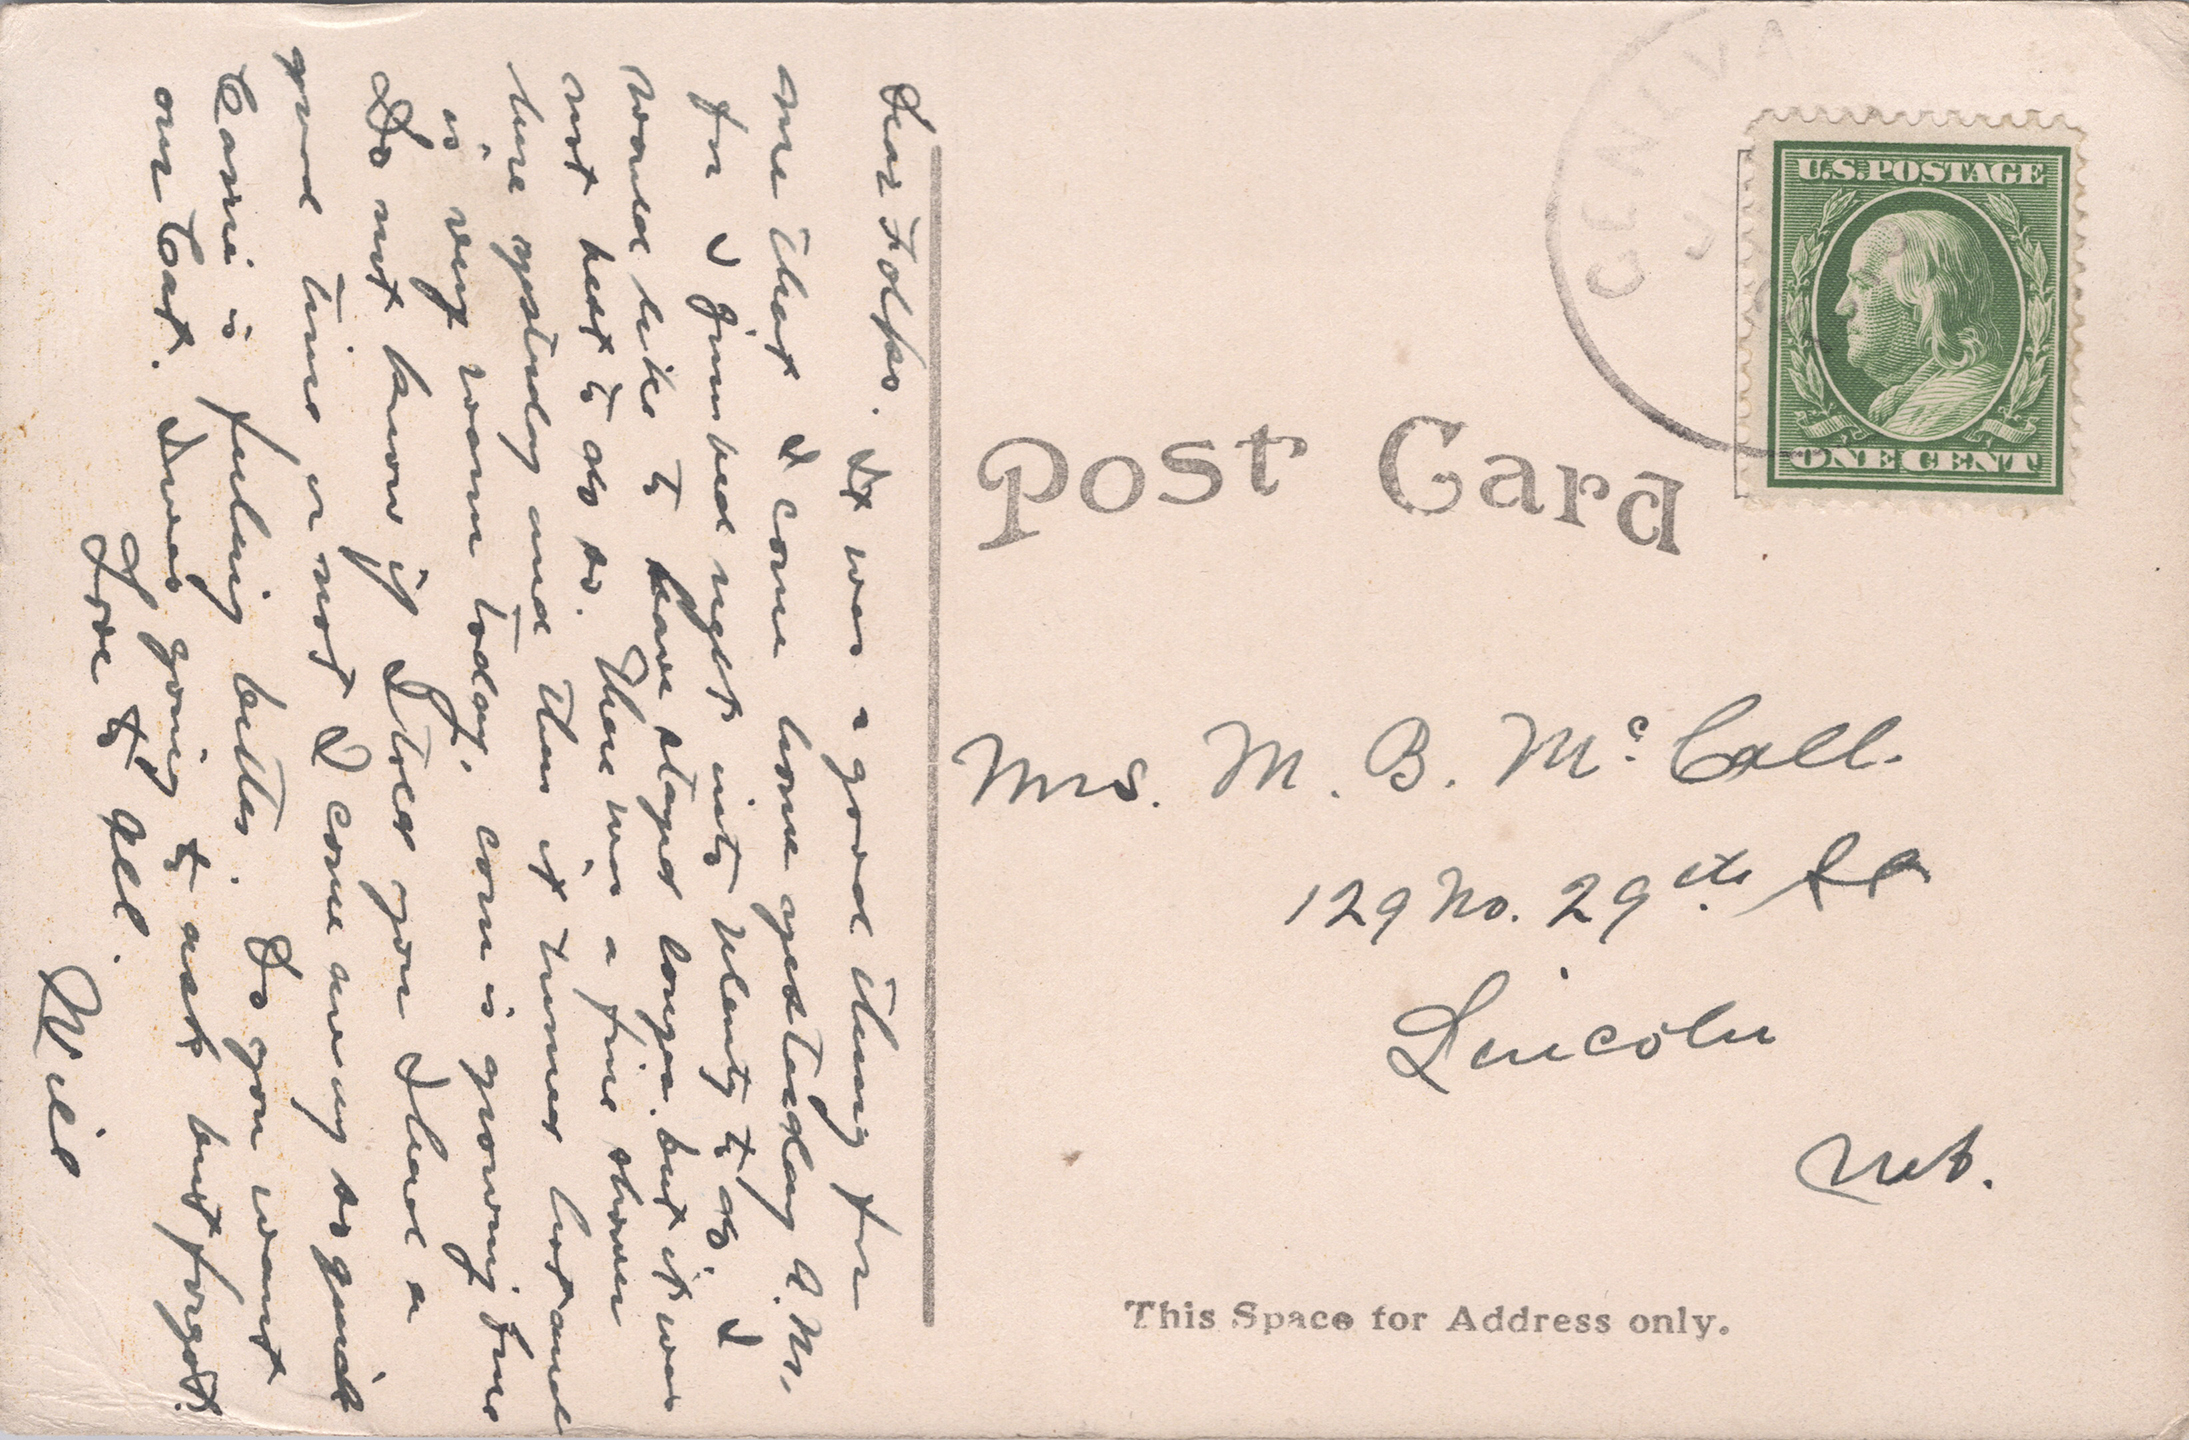 Dear Folks. It was a good thing for
me that I come home yesterday A.M.
for I jumped right into plenty to do. I
would like to have stayed longer. but it was
not best to do so. There was a fine shower
here yesterday and then it turned hot and
is very warm today, corn is growing fine
Do not know if I told you I had a
good time or not I come away so quick
Carrie is feeling better. Do you want
our Cat. I was going to ask but forgot.
Love to All.
Will
GENEVA
U.S. POSTAGE
ONE CENT
Post Card
Mrs. M. B. McCall.
129 No. 29th St
Lincoln
Neb.
This Space for Address only.